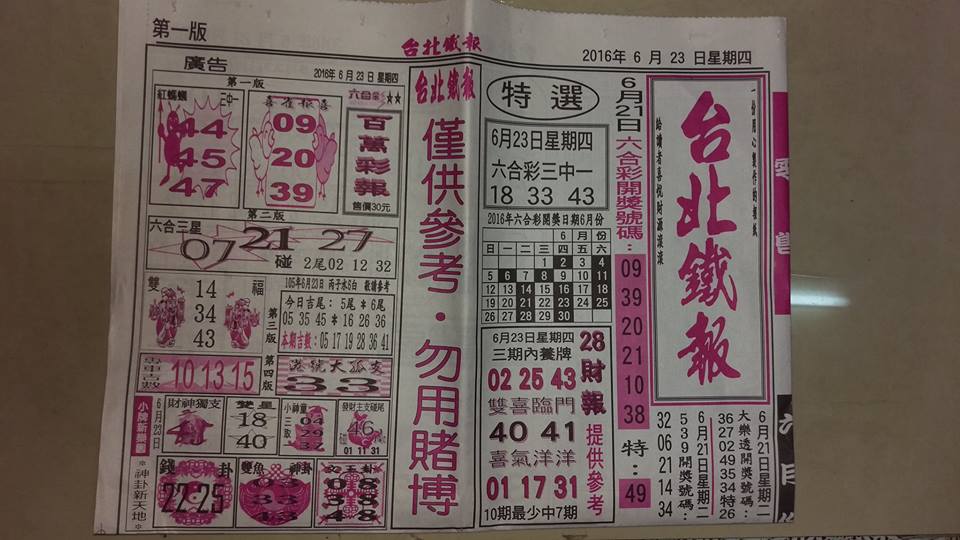 第一版
台北鐵報
2016年 6 月 23 日星期四
廣告
第一版
2016年 6 月 23 日 星期四
紅螞蟻
二中一
44
45
47
喜雀報喜
09
20
39
六合彩
★★
百萬彩報
售價30元
第二版
六合三星
07 21 27
碰 2尾02 12 32
雙福
14
34
43
105年6月23日 丙子水5白 敬請參考
第三版
今日吉尾: 5尾*6尾
05 35 45 * 16 26 36
本期吉數: 05 17 19 28 36 41
10 13 15
第四版
港號大孤支
33
小牌新樂園
6月23日
財神獨支
雙星
18
40
小神童
三取
04
29
發財主支碰尾
46
01 11 31
*神卦新天地*
錢卦
22-25
雙魚
神卦
03
33
43
文王卦
台北鐵報
僅供參考・勿用賭博
特選
6月23日星期四
六合彩三中一
18 33 43
2016年六合彩開獎日期6月份
6 月 份
日 一 二 三 四 五 六
1 2 3 4
5 6 7 8 9 10 11
12 13 14 15 16 17 18
19 20 21 22 23 24 25
26 27 28 29 30
6月23日星期四
三期內養牌
02 25 43
雙喜臨門
40 41
喜氣洋洋
01 17 31
10期最少中7期
28財報提供參考
6月21日六合彩開獎號碼:
09
39
20
21
10
38
特:
49
台北鐵報
一份用心製作的報紙
給讀者喜悅財源滾滾
6月21日星期二
大樂透開獎號碼:
36 27 02 49 35 34 特26
6月21日星期二
539開獎號碼:
32 06 21 14 34
零售
六月